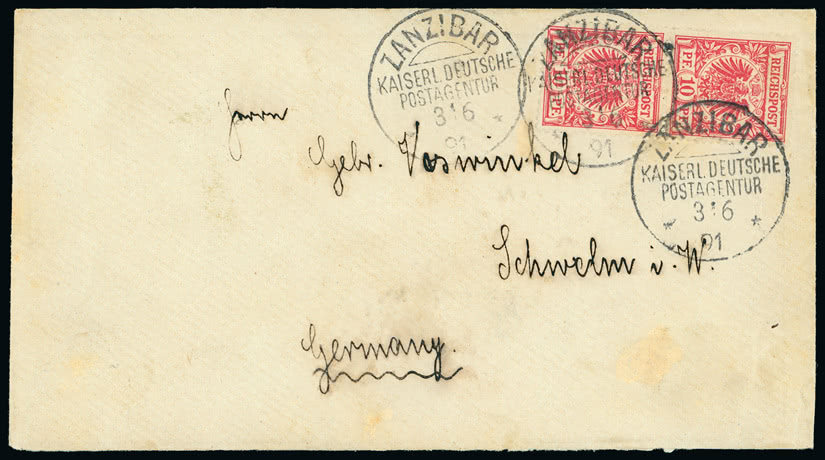 ZANZIBAR
KAISERL. DEUTSCHE
POSTAGENTUR
3 6
91
ZANZIBAR
KAISERL. DEUTSCHE
POSTAGENTUR
91
REICHSPOST
10 PF. 10
REICHSPOST
10 PF. 10
ZANZIBAR
KAISERL. DEUTSCHE
POSTAGENTUR
3 6
91
Herrn
Gebr. Voswinkel
Schwelm i. W.
Germany.